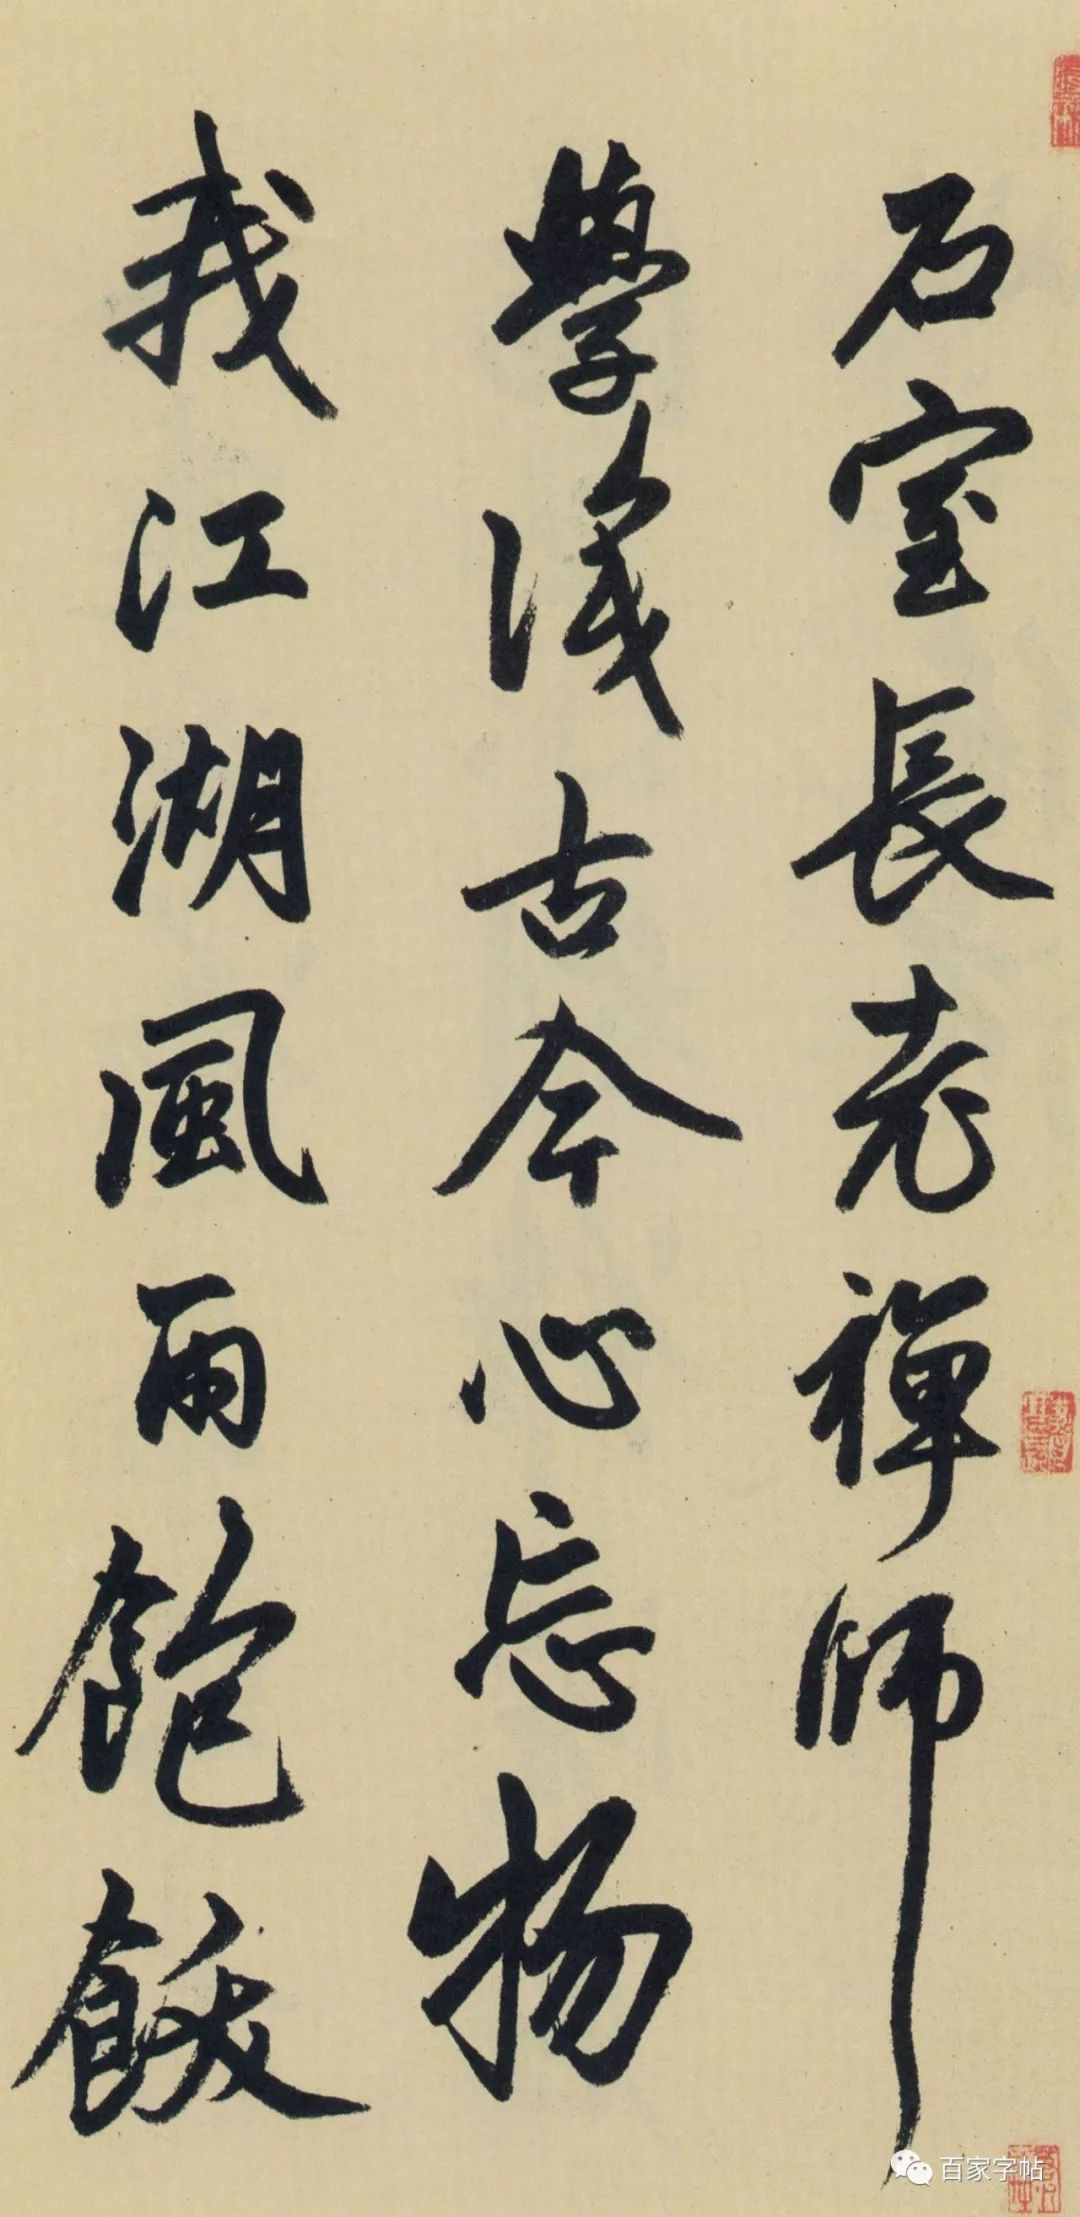 石室長老禪師
學識古今心忘物
我江湖風雨飽
百家字帖